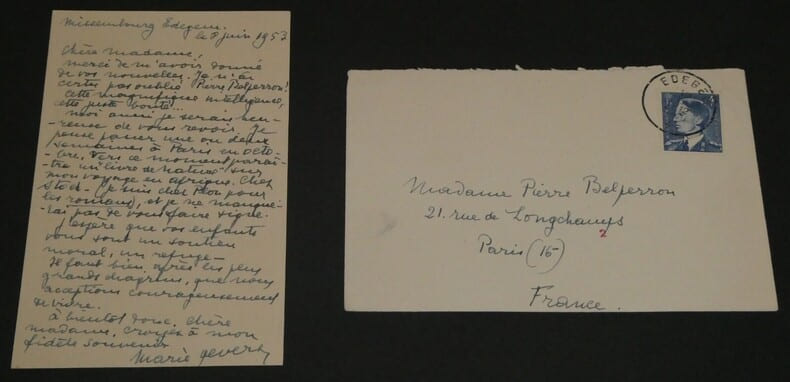 Missembourg Edegem.
le 8 juin 1953
Chère Madame,
merci de m'avoir donné
de vos nouvelles. Je n'ai
certes pas oublié Pierre Belperron!
cette magnifique intelligence,
cette juste bonté...
moi aussi je serais heu-
-reuse de vous revoir. Je
pense passer une ou deux
semaines à Paris en octo-
-bre. Vers ce moment paraî-
-tra un livre de "nature" sur
mon voyage en Afrique. Chez
Stock - (je suis chez Plon pour
les romans), et je ne manque-
-rai pas de vous faire signe.
J'espère que vos enfants
vous sont un soutien
moral, un refuge -
Il faut bien, après les plus
grands chagrins, que nous
acceptions courageusement
de vivre.
à bientôt donc, chère
madame, croyez à mon
fidèle souvenir
Marie Gevers
EDEGE
Madame Pierre Belperron
21. rue de Longchamps
2
Paris (16)
France.